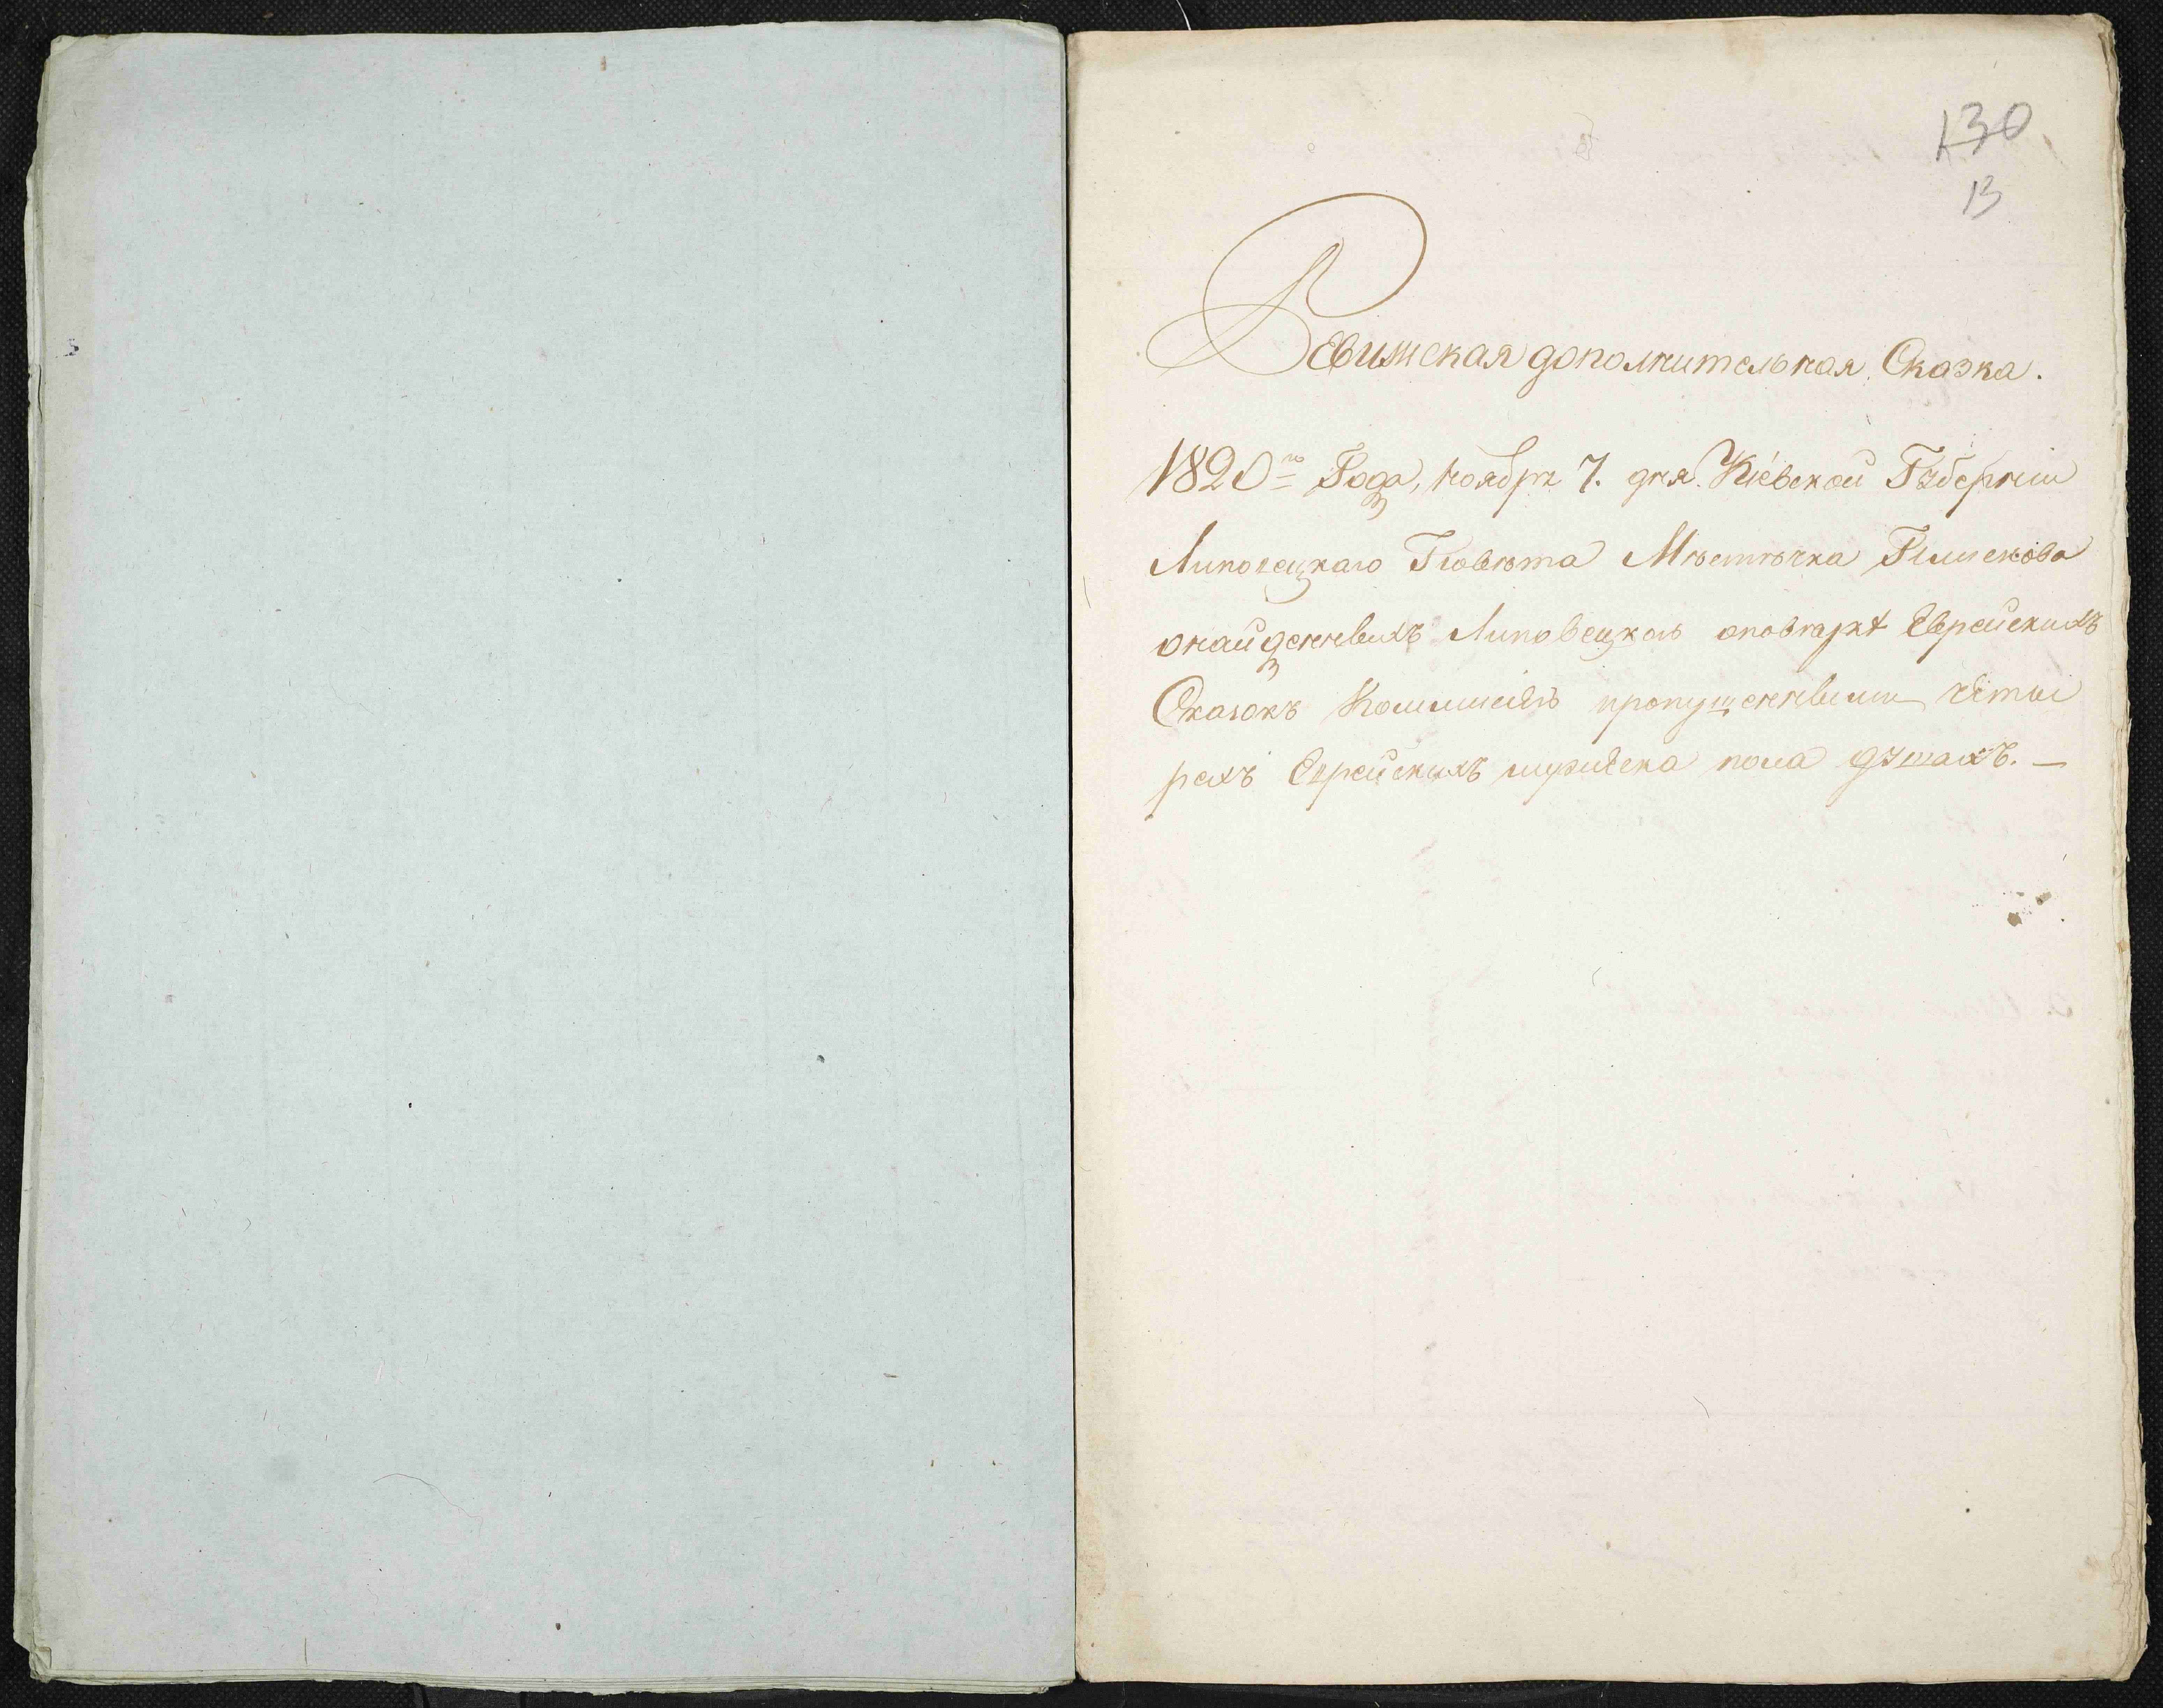 130
13
Ревижская дополнительная Сказка.
1820го Года, ноября 7. дня. Кіевской Губерніи
Липовецкаго Повѣта Мѣстѣчка
онайденныхъ Липовецкою Еврейскихъ
Сказокъ Коммисіею пропущенными четы
рехъ Еврейскихъ мужеска пола душахъ. —